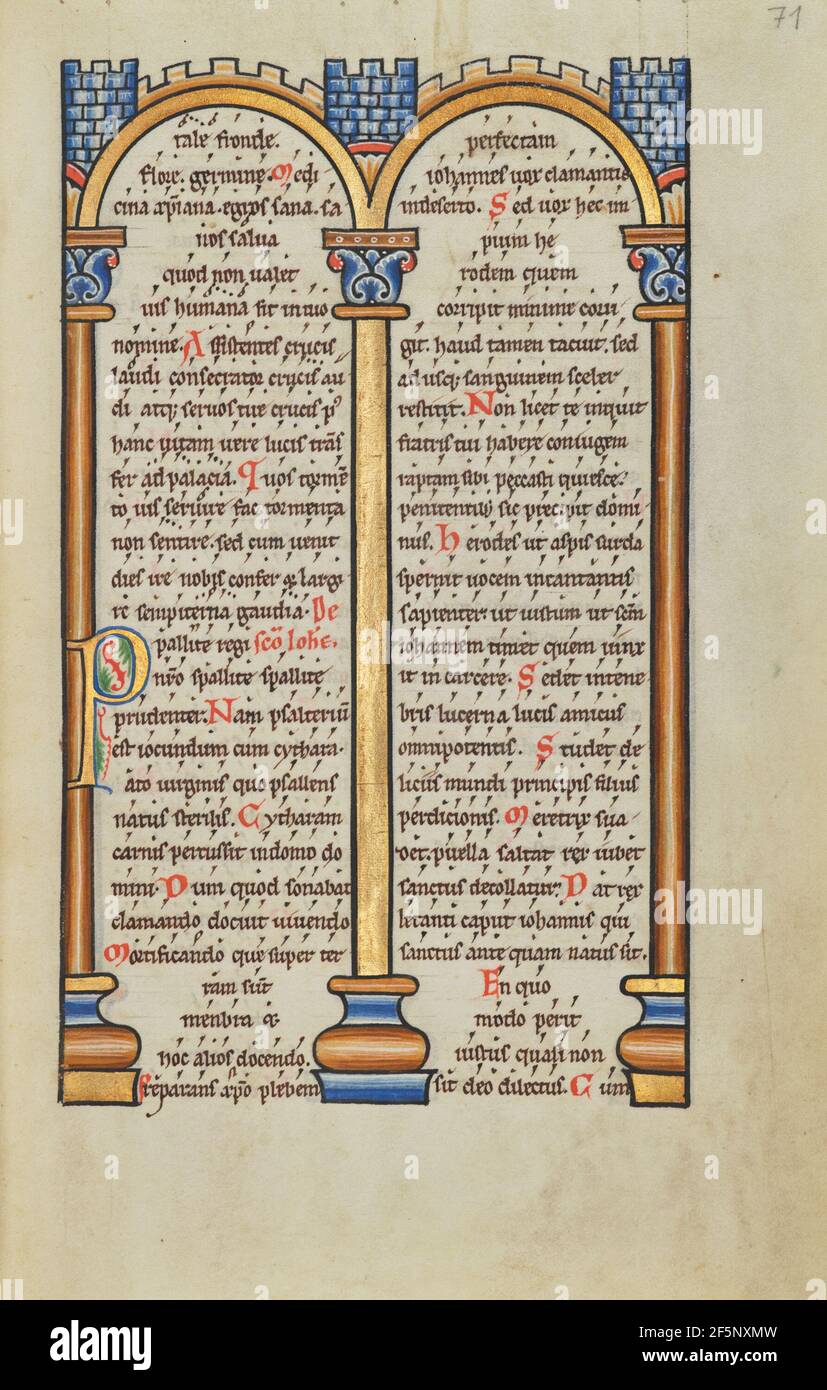 71
tale fronde.
flore. germine. Medi
cina xpiana. egros sana. sa
nos salua
quod non ualet
uis humana fit in tuo
nomine. Assistentes crucis
laudi consecrator crucis au
di atq; seruos tue crucis p9
hanc uitam uere lucis trãs
fer ad palacia. Quos tormẽ
to uis seruire fac tormenta
non sentire. sed cum uenit
dies ire nobis confer & largi
re sempiterna gaudia. De
Psallite regi sco iohe.
nr̃o psallite psallite
prudenter. Nam psalteriũ
est iocundum cum cythara.
ato uirginis quo psallens
natus sterilis. Cytharam
carnis percussit in domo do
mini. Dum quod sonabat
clamando docuit uiuendo
Mortificando que super ter
ram sũt
menbra &
hoc alios docendo.
Preparans xpo plebem
perfectam
iohannes uox clamantis
in deserto. Sed uox hec im
pium he
rodem quem
corripit minime corri
git. haud tamen tacuit. sed
ad usq; sanguinem sceler
restitit. Non licet te inquit
fratris tui habere coniugem
raptam sibi peccasti quiesce.
penitentib; sic precipit domi
nus. Herodes ut aspis surda
spernit uocem incantantis
sapienter. ut iustum ut scm̃
iohannem timet quem uinx
it in carcere. Sedet in tene
bris lucerna lucis amicus
omnipotentis. Studet de
liciis mundi principis filius
perdicionis. Meretrix sua
det. puella saltat rex iubet
sanctus decollatur. Dat rex
letanti caput iohannis qui
sanctus ante quam natus sit.
En quo
modo perit
iustus quasi non
sit deo dilectus. Cum
alamy
Image ID: 2F5NXMW
www.alamy.com